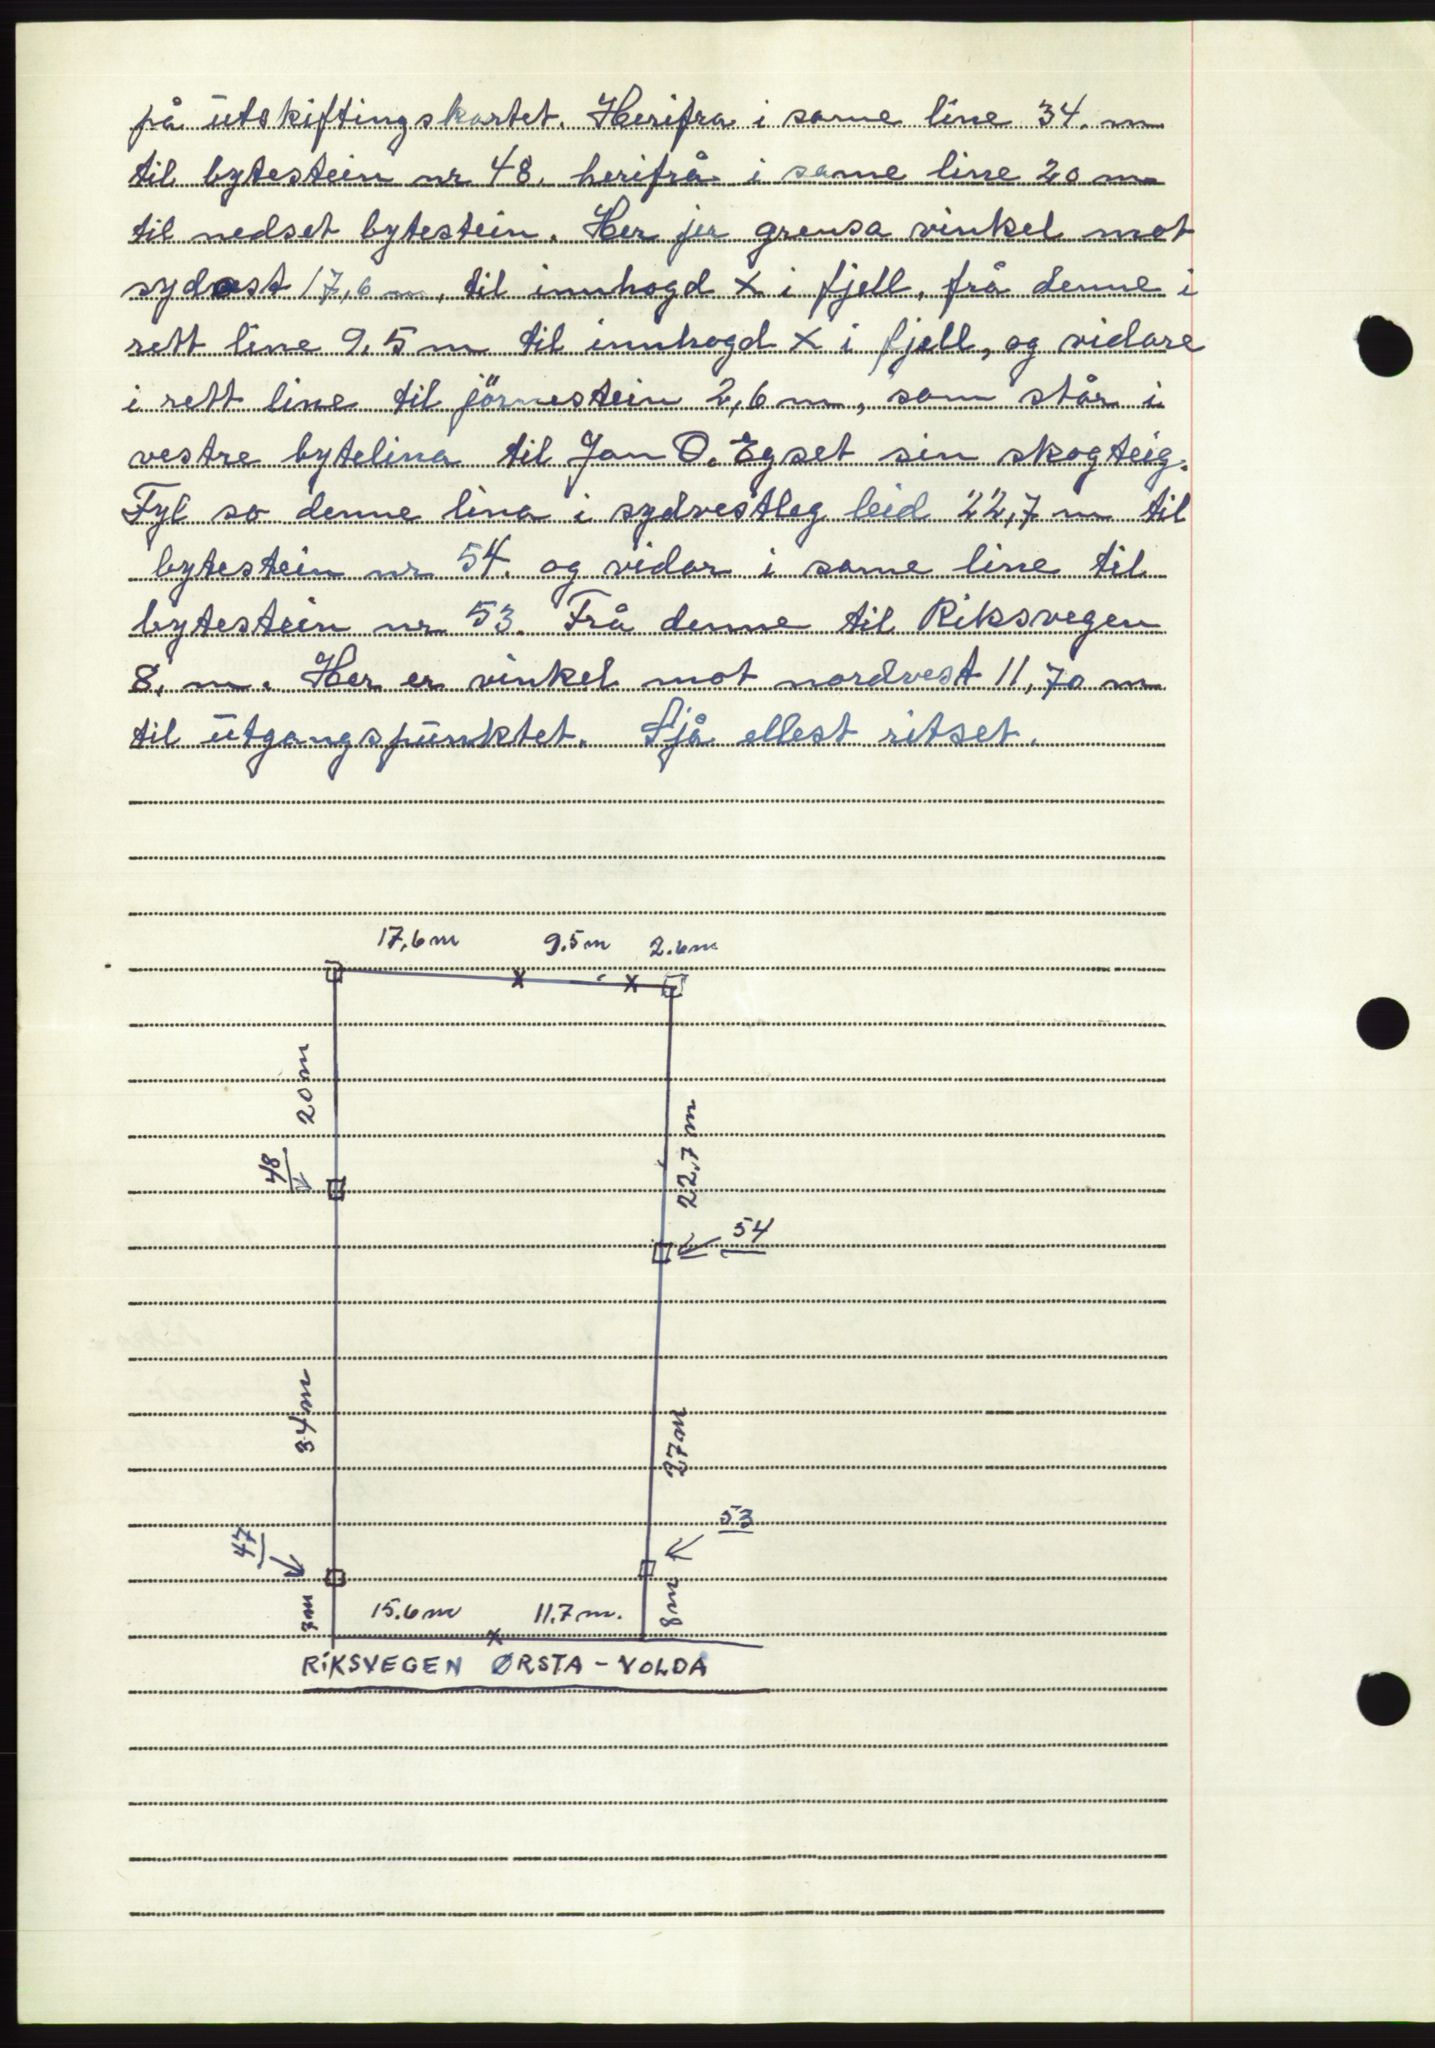 på utskiftingskartet. Herifra i same line 34. m
til bytestein nr 48. herifrå i same line 20 m
til nedset bytestein. Her jer grensa vinkel mot
sydøst 17,6 m, til innhogd X i fjell, frå denne i
rett line 9,5 m til innhogd X i fjell, og vidare
i rett line til jörnestein 2,6 m, som står i
vestre bytelina til Jan O. Egset sin skogteig.
Fyl so denne lina i sydvestleg leid 22,7 m til
bytestein nr 54. og vidar i same line til
bytestein nr 53. Frå denne til Riksvegen
8. m. Her er vinkel mot nordvest 11,70 m
til utgangspunktet. Sjå ellest ritset.
17,6 m 9.5 m 2.6 m
20 m
22,7 m
48
54
34 m
27 m
53
47
7 m 15.6 m 11.7 m. 8 m
RIKSVEGEN ØRSTA - VOLDA